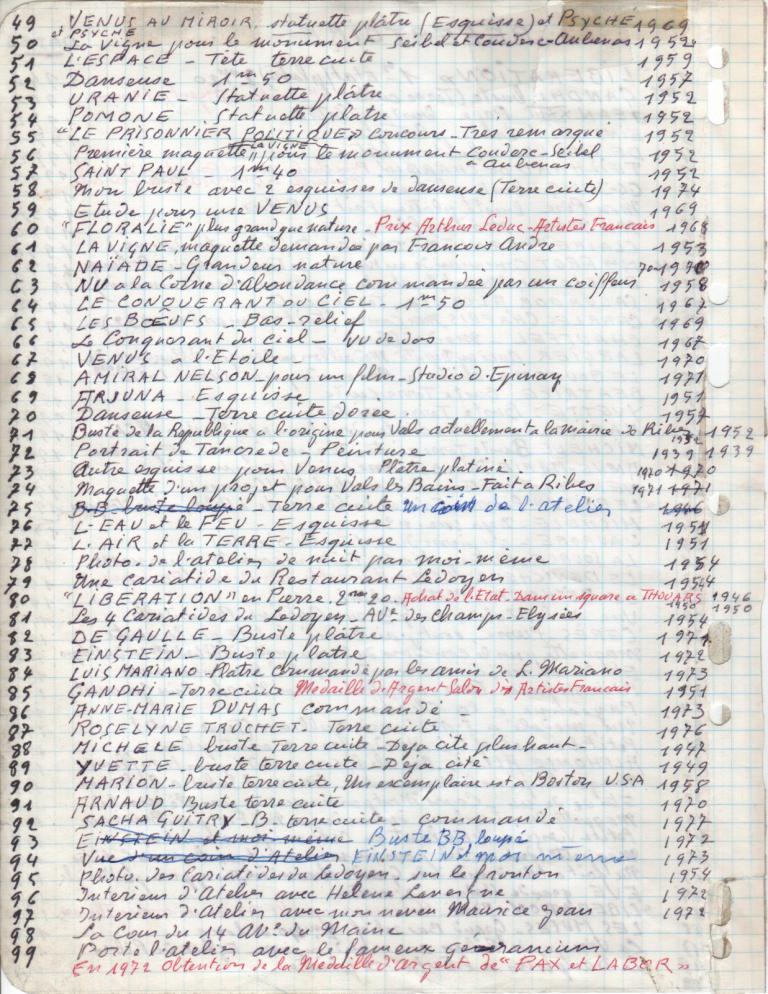 49 VENUS AU MIROIR, statuette plâtre (Esquisse) et PSYCHÉ 1969
et PSYCHÉ
50 La Vigne pour le monument Seibel et Couderc-Aubenas 1952
51 L'ESPACE - Tête terre cuite 1959
52 Danseuse 1m50 1957
53 URANIE - Statuette plâtre 1952
54 POMONE Statuette platre 1952
55 "LE PRISONNIER POLITIQUE" concours - Très remarqué 1952
56 Première maquette "LA VIGNE" pour le monument Couderc-Seibel à Aubenas 1952
57 SAINT PAUL - 1m40 1952
58 Mon buste avec 2 esquisses de danseuse (Terre cuite) 1974
59 Etude pour une VENUS 1969
60 "FLORALIE" plus grand que nature - Prix Arthur Leduc - Artistes Francais 1968
61 LA VIGNE, maquette demandée par Francois André 1953
62 NAÏADE - Grandeur nature 70 1970
63 NU a la Corne d'abondance commandée par un coiffeur 1958
64 LE CONQUERANT DU CIEL - 1m50 1967
65 LES BŒUFS - Bas-relief 1969
66 Le Conquerant du ciel - vu de dos 1967
67 VENUS a l'Etoile - 1970
68 AMIRAL NELSON - pour un film - Studio d'Epinay 1971
69 ARJUNA - Esquisse 1951
70 Danseuse - Terre cuite dorée. 1957
71 Buste de la Republique a l'origine pour Vals actuellement a la mairie de Ribes 1952 1952
72 Portrait de Tancrede - Peinture 1939 1939
73 Autre esquisse pour Venus Plâtre platiné. 1970 1970
74 Maquette d'un projet pour Vals les Bains - Fait a Ribes 1971 1971
75 B.B. buste loupé - Terre cuite un coin de l'atelier 1966
76 L'EAU et le FEU - Esquisse 1951
77 L'AIR et la TERRE - Esquisse 1951
78 Photo. de l'atelier de nuit par moi-même 1954
79 Une cariatide du Restaurant Ledoyen 1954
80 "LIBÉRATION" en Pierre. 2m20. Achat de l'Etat - Dans un square a THOUARS 1946
81 Les 4 Cariatides du Ledoyen - AVe des Champs-Elysées 1950 1950 1954
82 DE GAULLE - Buste plâtre 1971
83 EINSTEIN - Buste platre 1972
84 LUIS MARIANO - Platre commandé par les amis de L. Mariano 1973
85 GANDHI - Terre cuite Medaille d'Argent Salon des Artistes Francais 1951
86 ANNE-MARIE DUMAS commandé - 1973
87 ROSELYNE TRUCHET. Terre cuite 1976
88 MICHELE buste Terre cuite - Deja cité plus haut - 1947
89 YVETTE - buste terre cuite - Deja cité 1949
90 MARION - buste terre cuite, Un exemplaire est a Boston U.S.A 1958
91 ARNAUD Buste terre cuite 1970
92 SACHA GUITRY - B. terre cuite - commandé 1977
93 EINSTEIN et moi même Buste BB loupé 1972
94 Vue d'un coin d'Atelier EINSTEIN et moi même 1973
95 Photo. des Cariatides du Ledoyen - sur le fronton 1954
96 Interieur d'Atelier avec Helene Lavergne 1972
97 Interieur d'Atelier avec mon neveu Maurice Jean 1972
98 La Cour du 14 AVe du Maine
99 Porte l'atelier avec le fameux géraneium
En 1972 Obtention de la Medaille d'Argent de "PAX et LABOR"